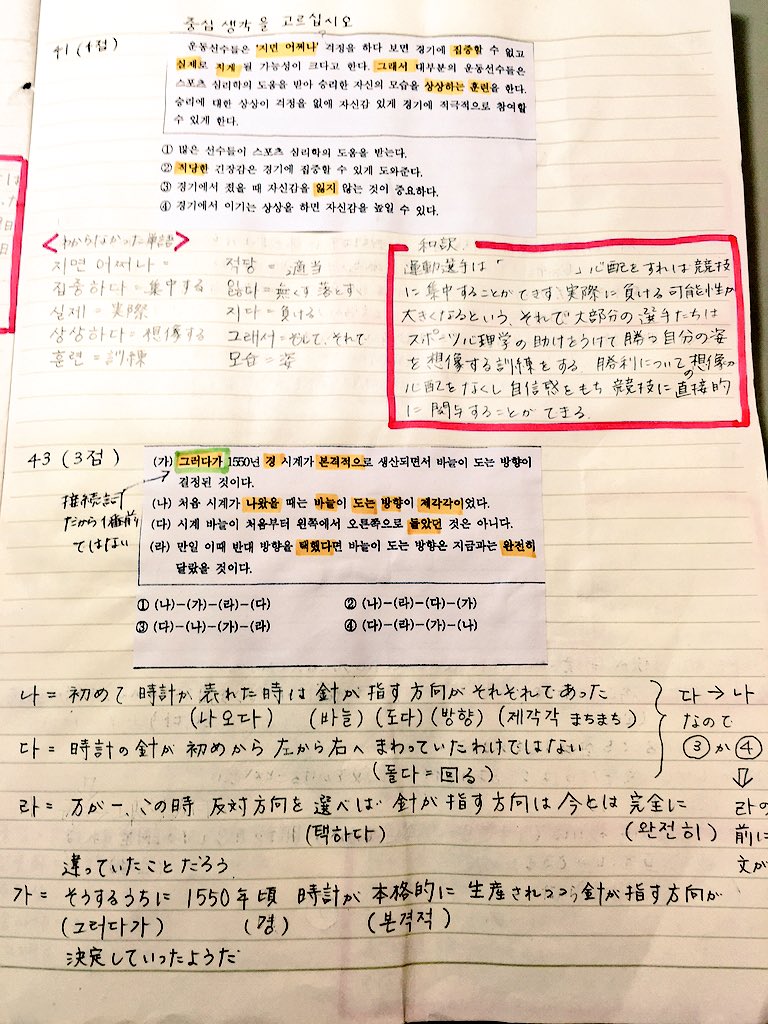 중심 생각을 고르십시오
41 (4점)
운동선수들은 '지면 어쩌나' 걱정을 하다 보면 경기에 집중할 수 없고
실제로 지게 될 가능성이 크다고 한다. 그래서 대부분의 운동선수들은
스포츠 심리학의 도움을 받아 승리한 자신의 모습을 상상하는 훈련을 한다.
승리에 대한 상상이 걱정을 없애 자신감 있게 경기에 적극적으로 참여할
수 있게 한다.
① 많은 선수들이 스포츠 심리학의 도움을 받는다.
② 적당한 긴장감은 경기에 집중할 수 있게 도와준다.
③ 경기에서 졌을 때 자신감을 잃지 않는 것이 중요하다.
④ 경기에서 이기는 상상을 하면 자신감을 높일 수 있다.
<わからなかった単語>
지면 어쩌나 =
집중하다 = 集中する
실제 = 実際
상상하다 = 想像する
훈련 = 訓練
적당 = 適当
잃다 = 無くす 落とす
지다 = 負ける
그래서 = そして、それで
모습 = 姿
和訳
運動選手は「 」心配をすれば競技
に集中することができず、実際に負ける可能性が
大きくなるという。それで大部分の選手たちは
スポーツ心理学の助けをうけて勝つ自分の姿
を想像する訓練をする。勝利についての想像が
心配をなくし自信感をもち競技に直接的
に関与することができる。
43 (3점)
(가) 그러다가 1550년 경 시계가 본격적으로 생산되면서 바늘이 도는 방향이
결정된 것이다.
(나) 처음 시계가 나왔을 때는 바늘이 도는 방향이 제각각이었다.
(다) 시계 바늘이 처음부터 왼쪽에서 오른쪽으로 돌았던 것은 아니다.
(라) 만일 이때 반대 방향을 택했다면 바늘이 도는 방향은 지금과는 완전히
달랐을 것이다.
接続詞
だから1番前
ではない
① (나)-(가)-(라)-(다)
② (나)-(라)-(다)-(가)
③ (다)-(나)-(가)-(라)
④ (다)-(라)-(가)-(나)
나 = 初めて時計が表れた時は針が指す方向がそれぞれであった
(나오다) (바늘) (도다) (방향) (제각각 まちまち)
다 = 時計の針が初めから左から右へまわっていたわけではない
(돌다 = 回る)
다→나
なので
③か④
⇩
라の
前に
文が
라 = 万が一、この時反対方向を選べば針が指す方向は今とは完全に
(택하다) (완전히)
違っていたことだろう
가 = そうするうちに1550年頃 時計が本格的に生産されつつ針が指す方向が
(그러다가) (경) (본격적)
決定していったようだ